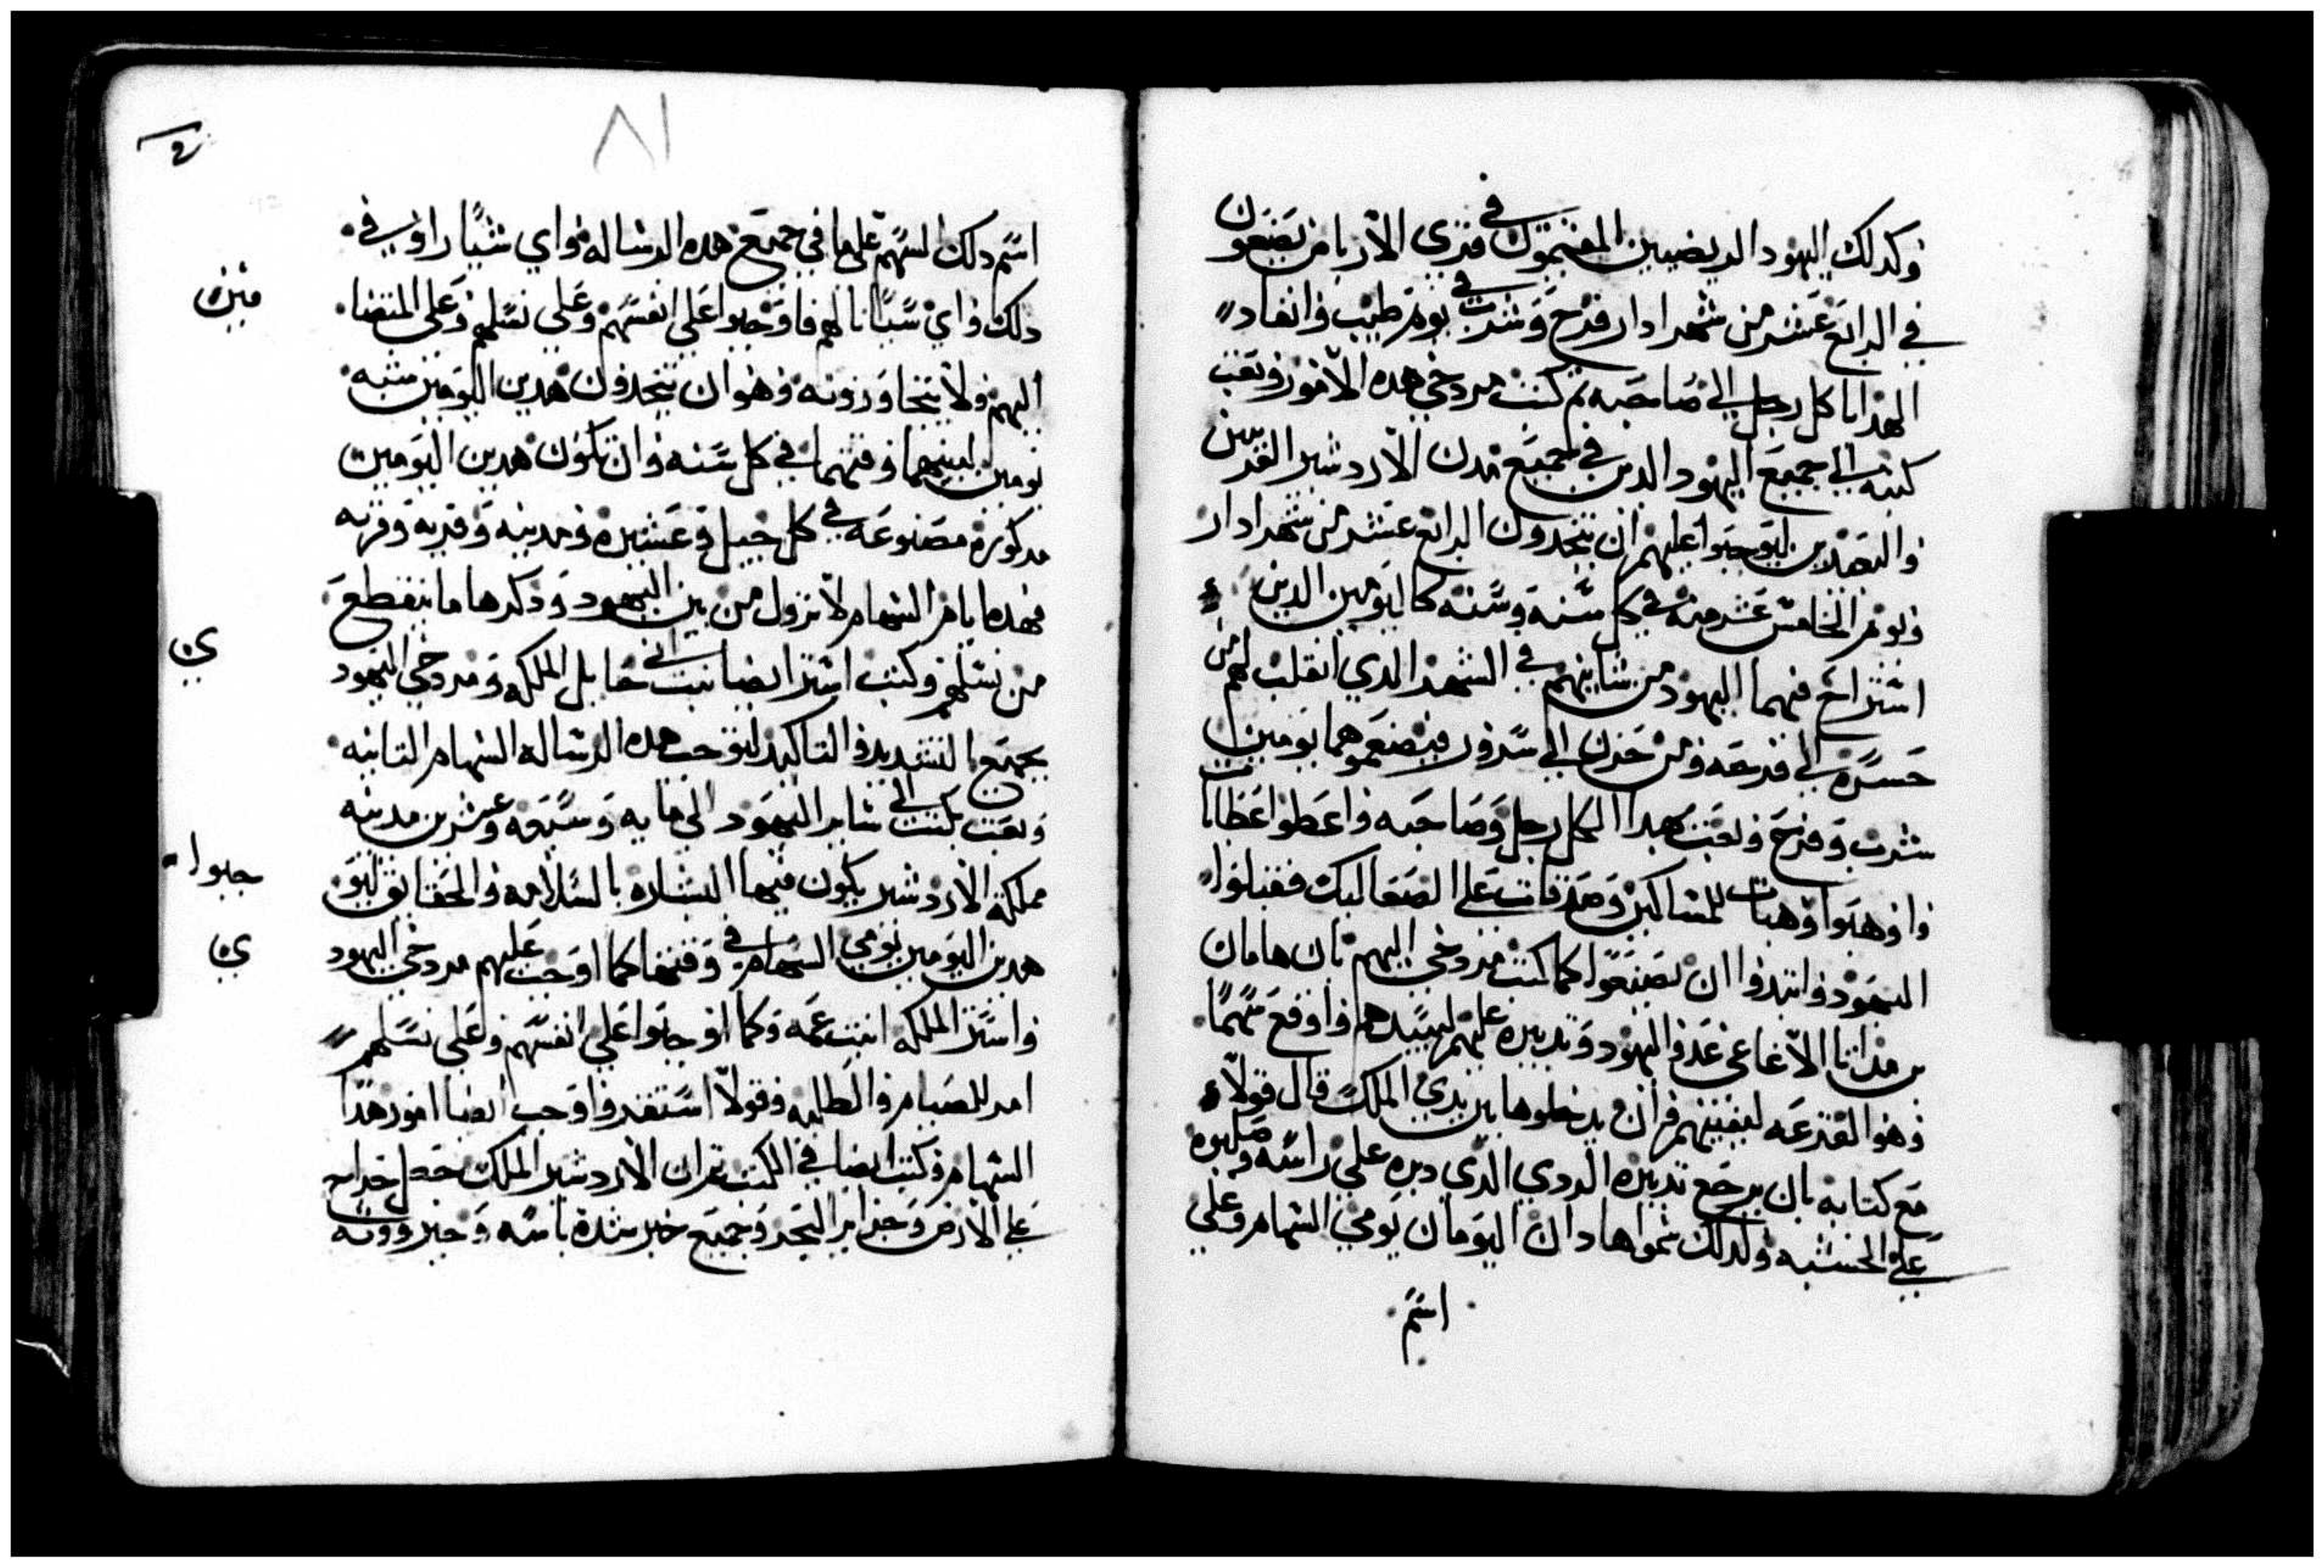 وكدلك اليهود الربضيين المقيمون في قري الارباض يصنعون
في الرابع عشر من شهر ادار فرح وشرب في يوم طيب وانفاد
الهدايا كل رجل الي صاحبه ثم كتب مردخي هده الامور وبعث
كتبه الي جميع اليهود الدين في جميع مدن الاردشير القريبين
والبعدين ليوجبوا عليهم ان يتخدون الرابع عشر من شهر ادار
ويوم الخامس عشر منه في كل سنه وسنه كاليومين الدين
استراح فيهما اليهود من شانيهم في الشهر الدي انقلب لهم من
حسره الي فرحه ومن حزن الي سرور فيصنعوهما يومين
شرب وفرح وبعث هدايا لكل رجل وصاحبه واعطوا عطايا
واوهبوا وهبات للمساكين وصدقات علي الصعاليك فقبلوا
اليهود وابتدوا ان يصنعوا كما كتب مردخي اليهم بان هامان
بن مداتا الاغاغي عدو اليهود وتدبيره عليهم ليبيدهم واوقع سهما
وهو القرعه ليفنيهم وان بدخلوها بين يدي الملك قال قولا
مع كتابه بان يرجع تدبيره الردي الدي دبره علي راسه وصلبوه
علي الخشبه ولدلك سموا هادان اليومان يومي السهام وعلي
اسم
٨١
اسم دلك السهم علي ما في جميع هده الرساله واي شيا راو في
دلك واي سببا نالهم فاوجبوا علي انفسهم وعلي نسلهم وعلي المنضا
اليهم ولا يتجاوزونه وهو ان يتخدون هدين اليومين مثبته
يومين بعينهما وقتهما في كل سنه وان تكون هدين اليومين
مدكوره مصنوعه في كل جيل وعشيره ومدينه وقريه وقريه
فهده ايام السهام لا تزول من بين اليهود ودكرها ما ينقطع
من نسلهم وكتبت استر ايضا بنت ابي حايل الملكه ومردخي اليهود
بجميع التشديد والتاكيد ليوجب هده الرساله السهام التانيه
وبعث بكتب الي ساير اليهود الي مايه وسبعه وعشرين مدينه
مملكة الاردشير يكون فيها البشاره بالسلامه والحقايق ليو
جبوا
هدين اليومين يومي السهام في وقتها كما اوجب عليهم مردخي اليهود
واستر الملكه ابنت عمه وكما اوجبوا علي انفسهم وعلي نسلهم
امر للصيام والطلبه وقولا استقدوا وجب ايضا امور هدا
السهام وكتب ايضا في الكتب تم ان الاردشير الملك جعل خراج
علي الارض وجزاير البحر وجميع خبر شدة باسه وجبرووته